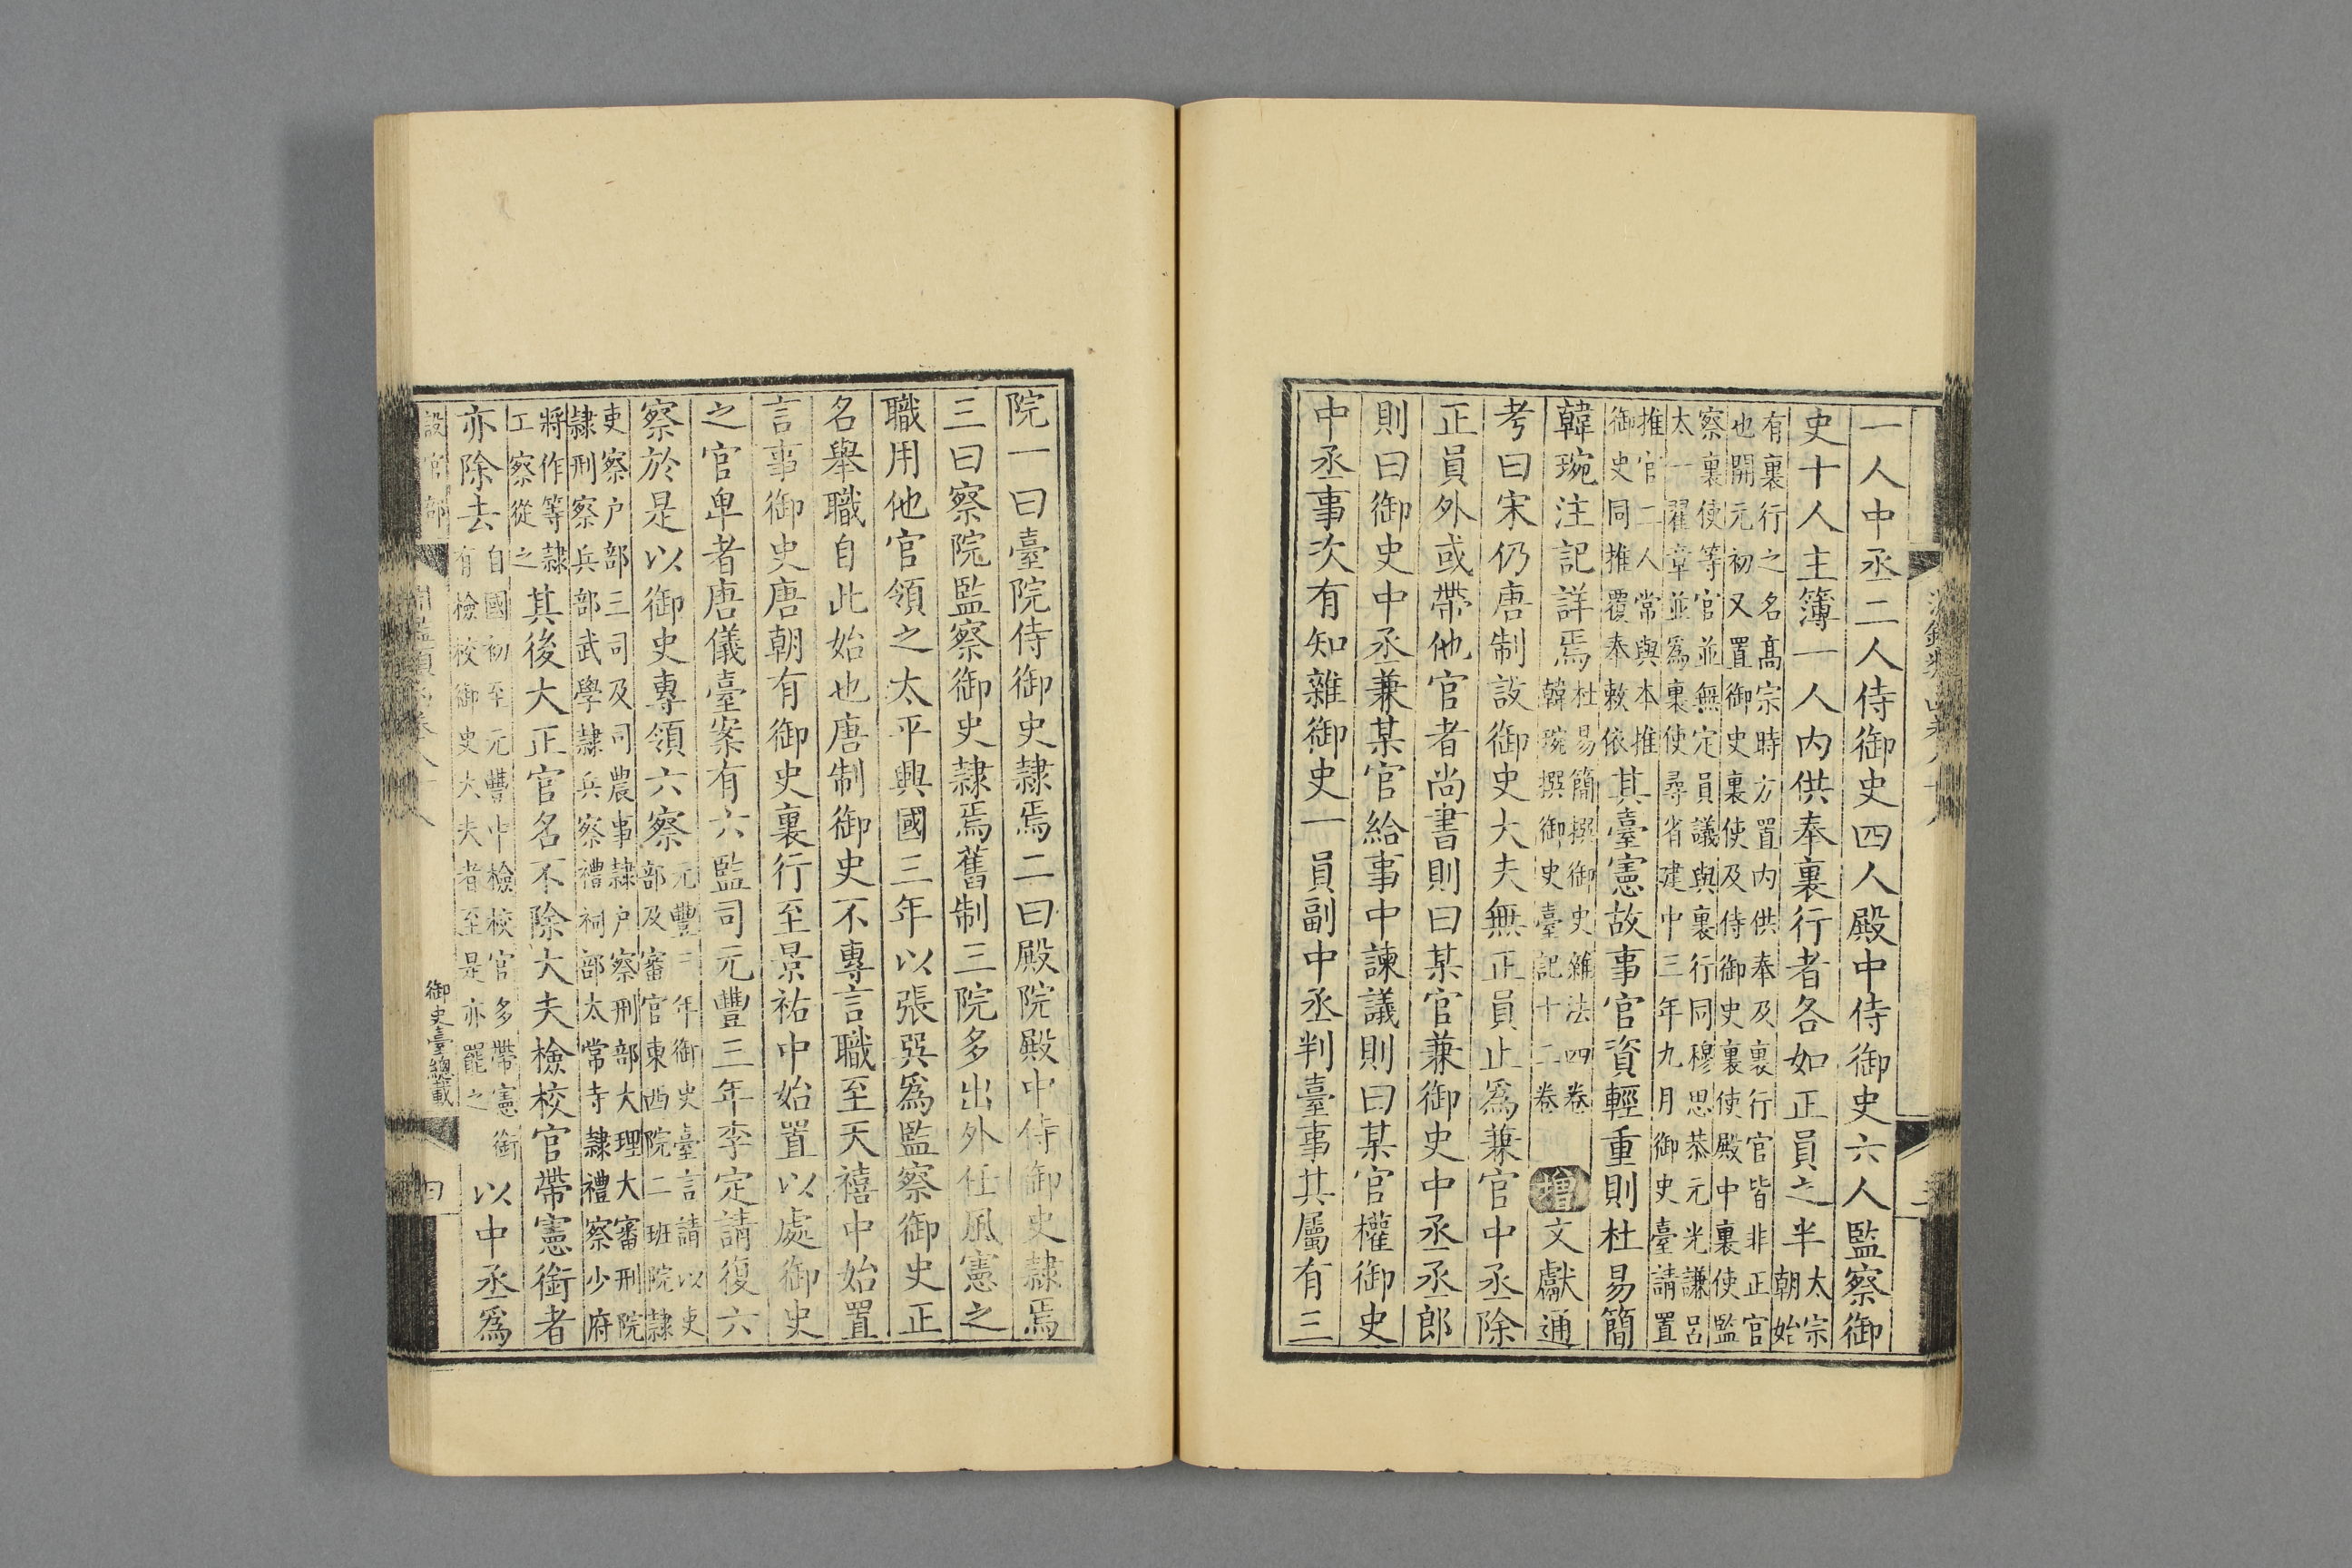 一人中丞二人侍御史四人殿中侍御史六人監察御
史十人主簿一人內供奉裏行者各如正員之半太宗朝始
有裏行之名高宗時方置內供奉及裏行官皆非正官
也開元初又置御史裏使及侍御史裏使殿中裏使監
察裏使等官並無定員議與裏行同穆思恭元光謙呂
太一翟章並爲裏使尋省建中三年九月御史臺請置
推官二人常與本推
御史同推覆奉敕依其臺憲故事官資輕重則杜易簡
韓琬注記詳焉杜易簡撰御史雜法四卷
韓琬撰御史臺記十二卷增文獻通
考曰宋仍唐制設御史大夫無正員止爲兼官中丞除
正員外或帶他官者尚書則曰某官兼御史中丞丞郎
則曰御史中丞兼某官給事中諫議則曰某官權御史
中丞事次有知雜御史一員副中丞判臺事其屬有三
院一曰臺院侍御史隸焉二曰殿院殿中侍御史隸焉
三曰察院監察御史隸焉舊制三院多出外任風憲之
職用他官領之太平興國三年以張巽爲監察御史正
名舉職自此始也唐制御史不專言職至天禧中始置
言事御史唐朝有御史裏行至景祐中始置以處御史
之官卑者唐儀臺案有六監司元豐三年李定請復六
察於是以御史專領六察元豐三年御史臺言請以吏
部及審官東西院二班院隸
吏察户部三司及司農事隸户察刑部大理大審刑院
隸刑察兵部武學隸兵察禮祠部太常寺隸禮察少府
將作等隸
工察從之其後大正官名不除大夫檢校官帶憲銜者
亦除去自國初至元豐中檢校官多帶憲銜
有檢校御史大夫者至是亦罷之以中丞爲
設官部
御史臺總載
四